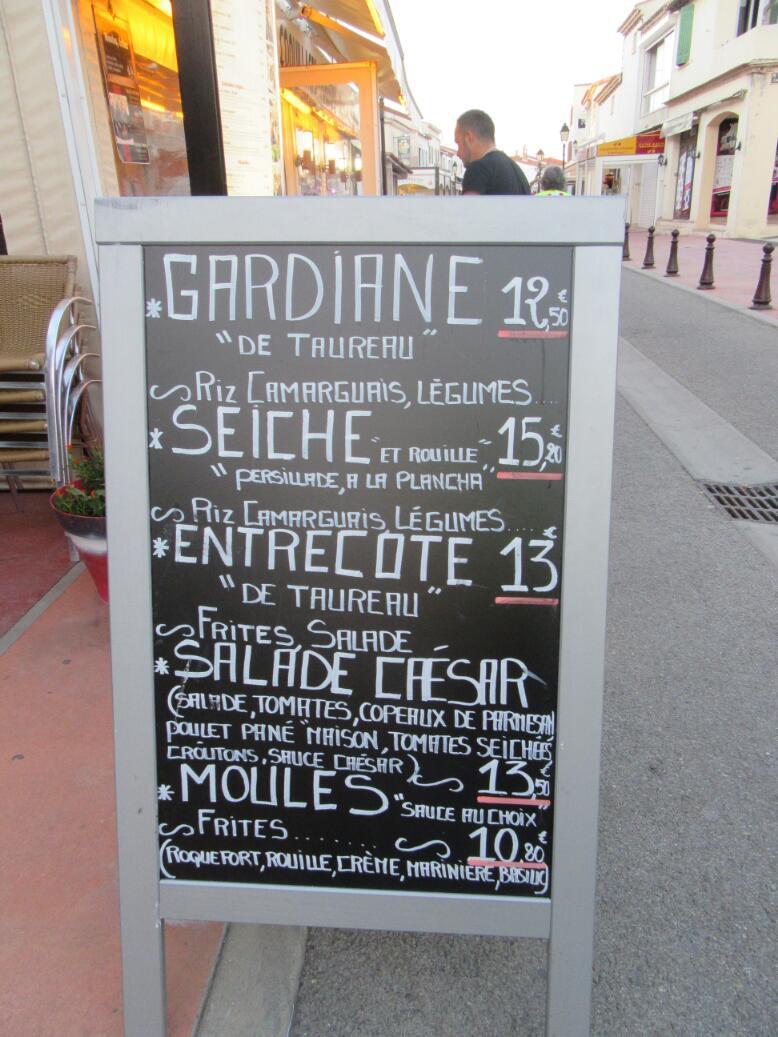 * GARDIANE 12,50 €
"DE TAUREAU"
RIZ CAMARGUAIS, LÉGUMES....
* SEICHE "ET ROUILLE" 15,20 €
"PERSILLADE, A LA PLANCHA"
RIZ CAMARGUAIS, LÉGUMES.....
* ENTRECOTE 13 €
"DE TAUREAU"
FRITES, SALADE
* SALADE CAÉSAR
(SALADE, TOMATES, COPEAUX DE PARMESAN
POULET PANÉ "MAISON, TOMATES SEICHÉES
CROÛTONS, SAUCE CAÉSAR) 13,50 €
* MOULES "SAUCE AU CHOIX"
FRITES........ 10,80 €
(ROQUEFORT, ROUILLE, CRÈME, MARINIERE, BASILIC)